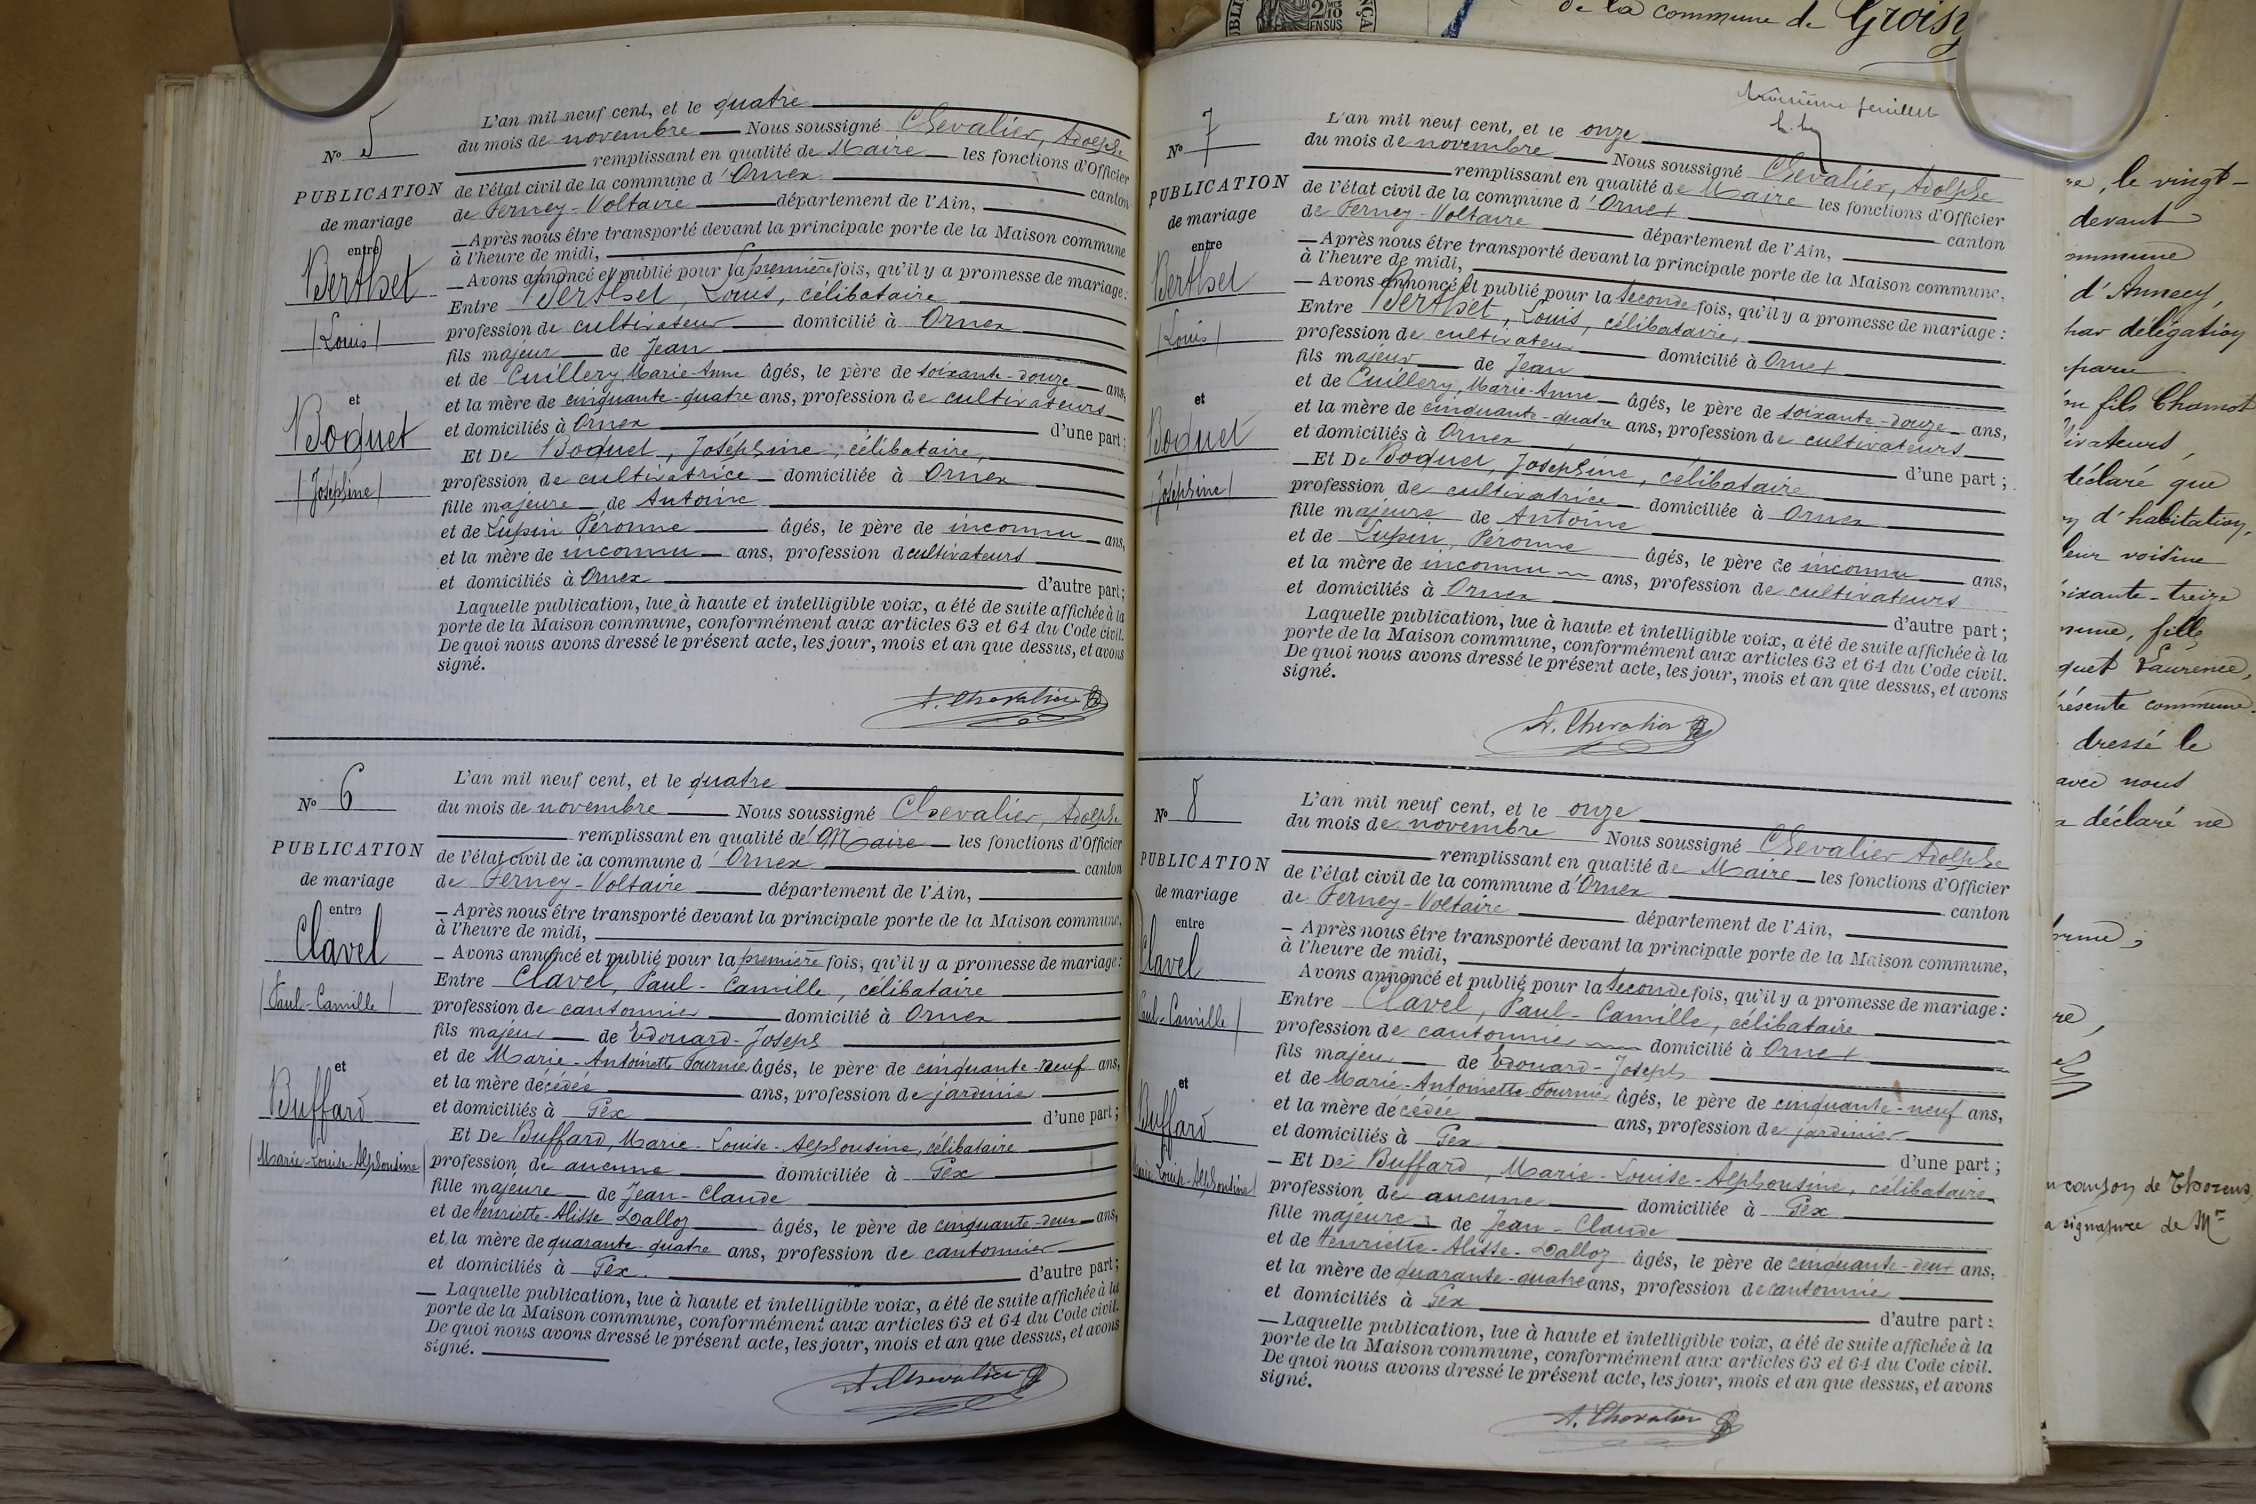 de la commune de Groisy
N° 5
PUBLICATION
de mariage
entre
Berthet
(Louis)
et
Boquet
(Joséphine)
L'an mil neuf cent, et le quatre
du mois de novembre Nous soussigné Chevalier, Adolphe
remplissant en qualité de Maire les fonctions d'Officier
de l'état civil de la commune d'Ornex canton
de Ferney-Voltaire département de l'Ain,
Après nous être transporté devant la principale porte de la Maison commune
à l'heure de midi,
Avons annoncé et publié pour la première fois, qu'il y a promesse de mariage:
Entre Berthet, Louis, célibataire
profession de cultivateur domicilié à Ornex
fils majeur de Jean
et de Cuillery Marie-Anne âgés, le père de soixante-douze ans,
et la mère de cinquante-quatre ans, profession de cultivateurs
et domiciliés à Ornex d'une part;
Et De Boquet, Joséphine, célibataire,
profession de cultivatrice domiciliée à Ornex
fille majeure de Antoine
et de Lupin Péronne âgés, le père de inconnu ans,
et la mère de inconnu ans, profession de cultivateurs
et domiciliés à Ornex d'autre part;
Laquelle publication, lue à haute et intelligible voix, a été de suite affichée à la
porte de la Maison commune, conformément aux articles 63 et 64 du Code civil.
De quoi nous avons dressé le présent acte, les jour, mois et an que dessus, et avons
signé.
A. Chevalier
N° 6
PUBLICATION
de mariage
entre
Clavel
(Paul-Camille)
et
Buffard
(Marie-Louise-Alphonsine)
L'an mil neuf cent, et le quatre
du mois de novembre Nous soussigné Chevalier, Adolphe
remplissant en qualité de Maire les fonctions d'Officier
de l'état civil de la commune d'Ornex canton
de Ferney-Voltaire département de l'Ain,
Après nous être transporté devant la principale porte de la Maison commune,
à l'heure de midi,
Avons annoncé et publié pour la première fois, qu'il y a promesse de mariage:
Entre Clavel, Paul-Camille, célibataire
profession de cantonnier domicilié à Ornex
fils majeur de Edouard-Joseph
et de Marie-Antoinette Fournier âgés, le père de cinquante-neuf ans,
et la mère décédée ans, profession de jardinier
et domiciliés à Gex d'une part;
Et De Buffard, Marie-Louise-Alphonsine, célibataire
profession de aucune domiciliée à Gex
fille majeure de Jean-Claude
et de Henriette-Alisse Dalloz âgés, le père de cinquante-deux ans,
et la mère de quarante-quatre ans, profession de cantonnier
et domiciliés à Gex. d'autre part;
Laquelle publication, lue à haute et intelligible voix, a été de suite affichée à la
porte de la Maison commune, conformément aux articles 63 et 64 du Code civil.
De quoi nous avons dressé le présent acte, les jour, mois et an que dessus, et avons
signé.
A. Chevalier
feuillet
N° 7
PUBLICATION
de mariage
entre
Berthet
(Louis)
et
Boquet
Joséphine)
L'an mil neuf cent, et le onze
du mois de novembre Nous soussigné Chevalier, Adolphe
remplissant en qualité de Maire les fonctions d'Officier
de l'état civil de la commune d'Ornex canton
de Ferney-Voltaire département de l'Ain,
Après nous être transporté devant la principale porte de la Maison commune,
à l'heure de midi,
Avons annoncé et publié pour la seconde fois, qu'il y a promesse de mariage:
Entre Berthet, Louis, célibataire,
profession de cultivateur domicilié à Ornex
fils majeur de Jean
et de Cuillery, Marie-Anne âgés, le père de soixante-douze ans,
et la mère de cinquante-quatre ans, profession de cultivateurs
et domiciliés à Ornex d'une part;
Et De Boquet, Joséphine, célibataire
profession de cultivatrice domiciliée à Ornex
fille majeure de Antoine
et de Lupin, Péronne âgés, le père de inconnu ans,
et la mère de inconnu ans, profession de cultivateurs
et domiciliés à Ornex d'autre part;
Laquelle publication, lue à haute et intelligible voix, a été de suite affichée à la
porte de la Maison commune, conformément aux articles 63 et 64 du Code civil.
De quoi nous avons dressé le présent acte, les jour, mois et an que dessus, et avons
signé.
A. Chevalier
N° 8
PUBLICATION
de mariage
entre
Clavel
Paul-Camille)
et
Buffard
Marie-Louise-Alphonsine)
L'an mil neuf cent, et le onze
du mois de novembre Nous soussigné Chevalier Adolphe
remplissant en qualité de Maire les fonctions d'Officier
de l'état civil de la commune d'Ornex canton
de Ferney-Voltaire département de l'Ain,
Après nous être transporté devant la principale porte de la Maison commune,
à l'heure de midi,
Avons annoncé et publié pour la seconde fois, qu'il y a promesse de mariage:
Entre Clavel, Paul-Camille, célibataire
profession de cantonnier domicilié à Ornex
fils majeur de Edouard-Joseph
et de Marie-Antoinette Fournier âgés, le père de cinquante-neuf ans,
et la mère décédée ans, profession de jardinier
et domiciliés à Gex d'une part;
Et De Buffard, Marie-Louise-Alphonsine, célibataire
profession de aucune domiciliée à Gex
fille majeure de Jean-Claude
et de Henriette-Alisse-Dalloz âgés, le père de cinquante-deux ans,
et la mère de quarante-quatre ans, profession de cantonnier
et domiciliés à Gex d'autre part:
Laquelle publication, lue à haute et intelligible voix, a été de suite affichée à la
porte de la Maison commune, conformément aux articles 63 et 64 du Code civil.
De quoi nous avons dressé le présent acte, les jour, mois et an que dessus, et avons
signé.
A. Chevalier
le vingt-
devant
d'Annecy,
par délégation
fils Chamot
déclaré que
d'habitation,
leur voisine
soixante-treize
fille
Laurence,
présente commune.
dressé le
avec nous
a déclaré ne
de Thorens,
signature de Mr